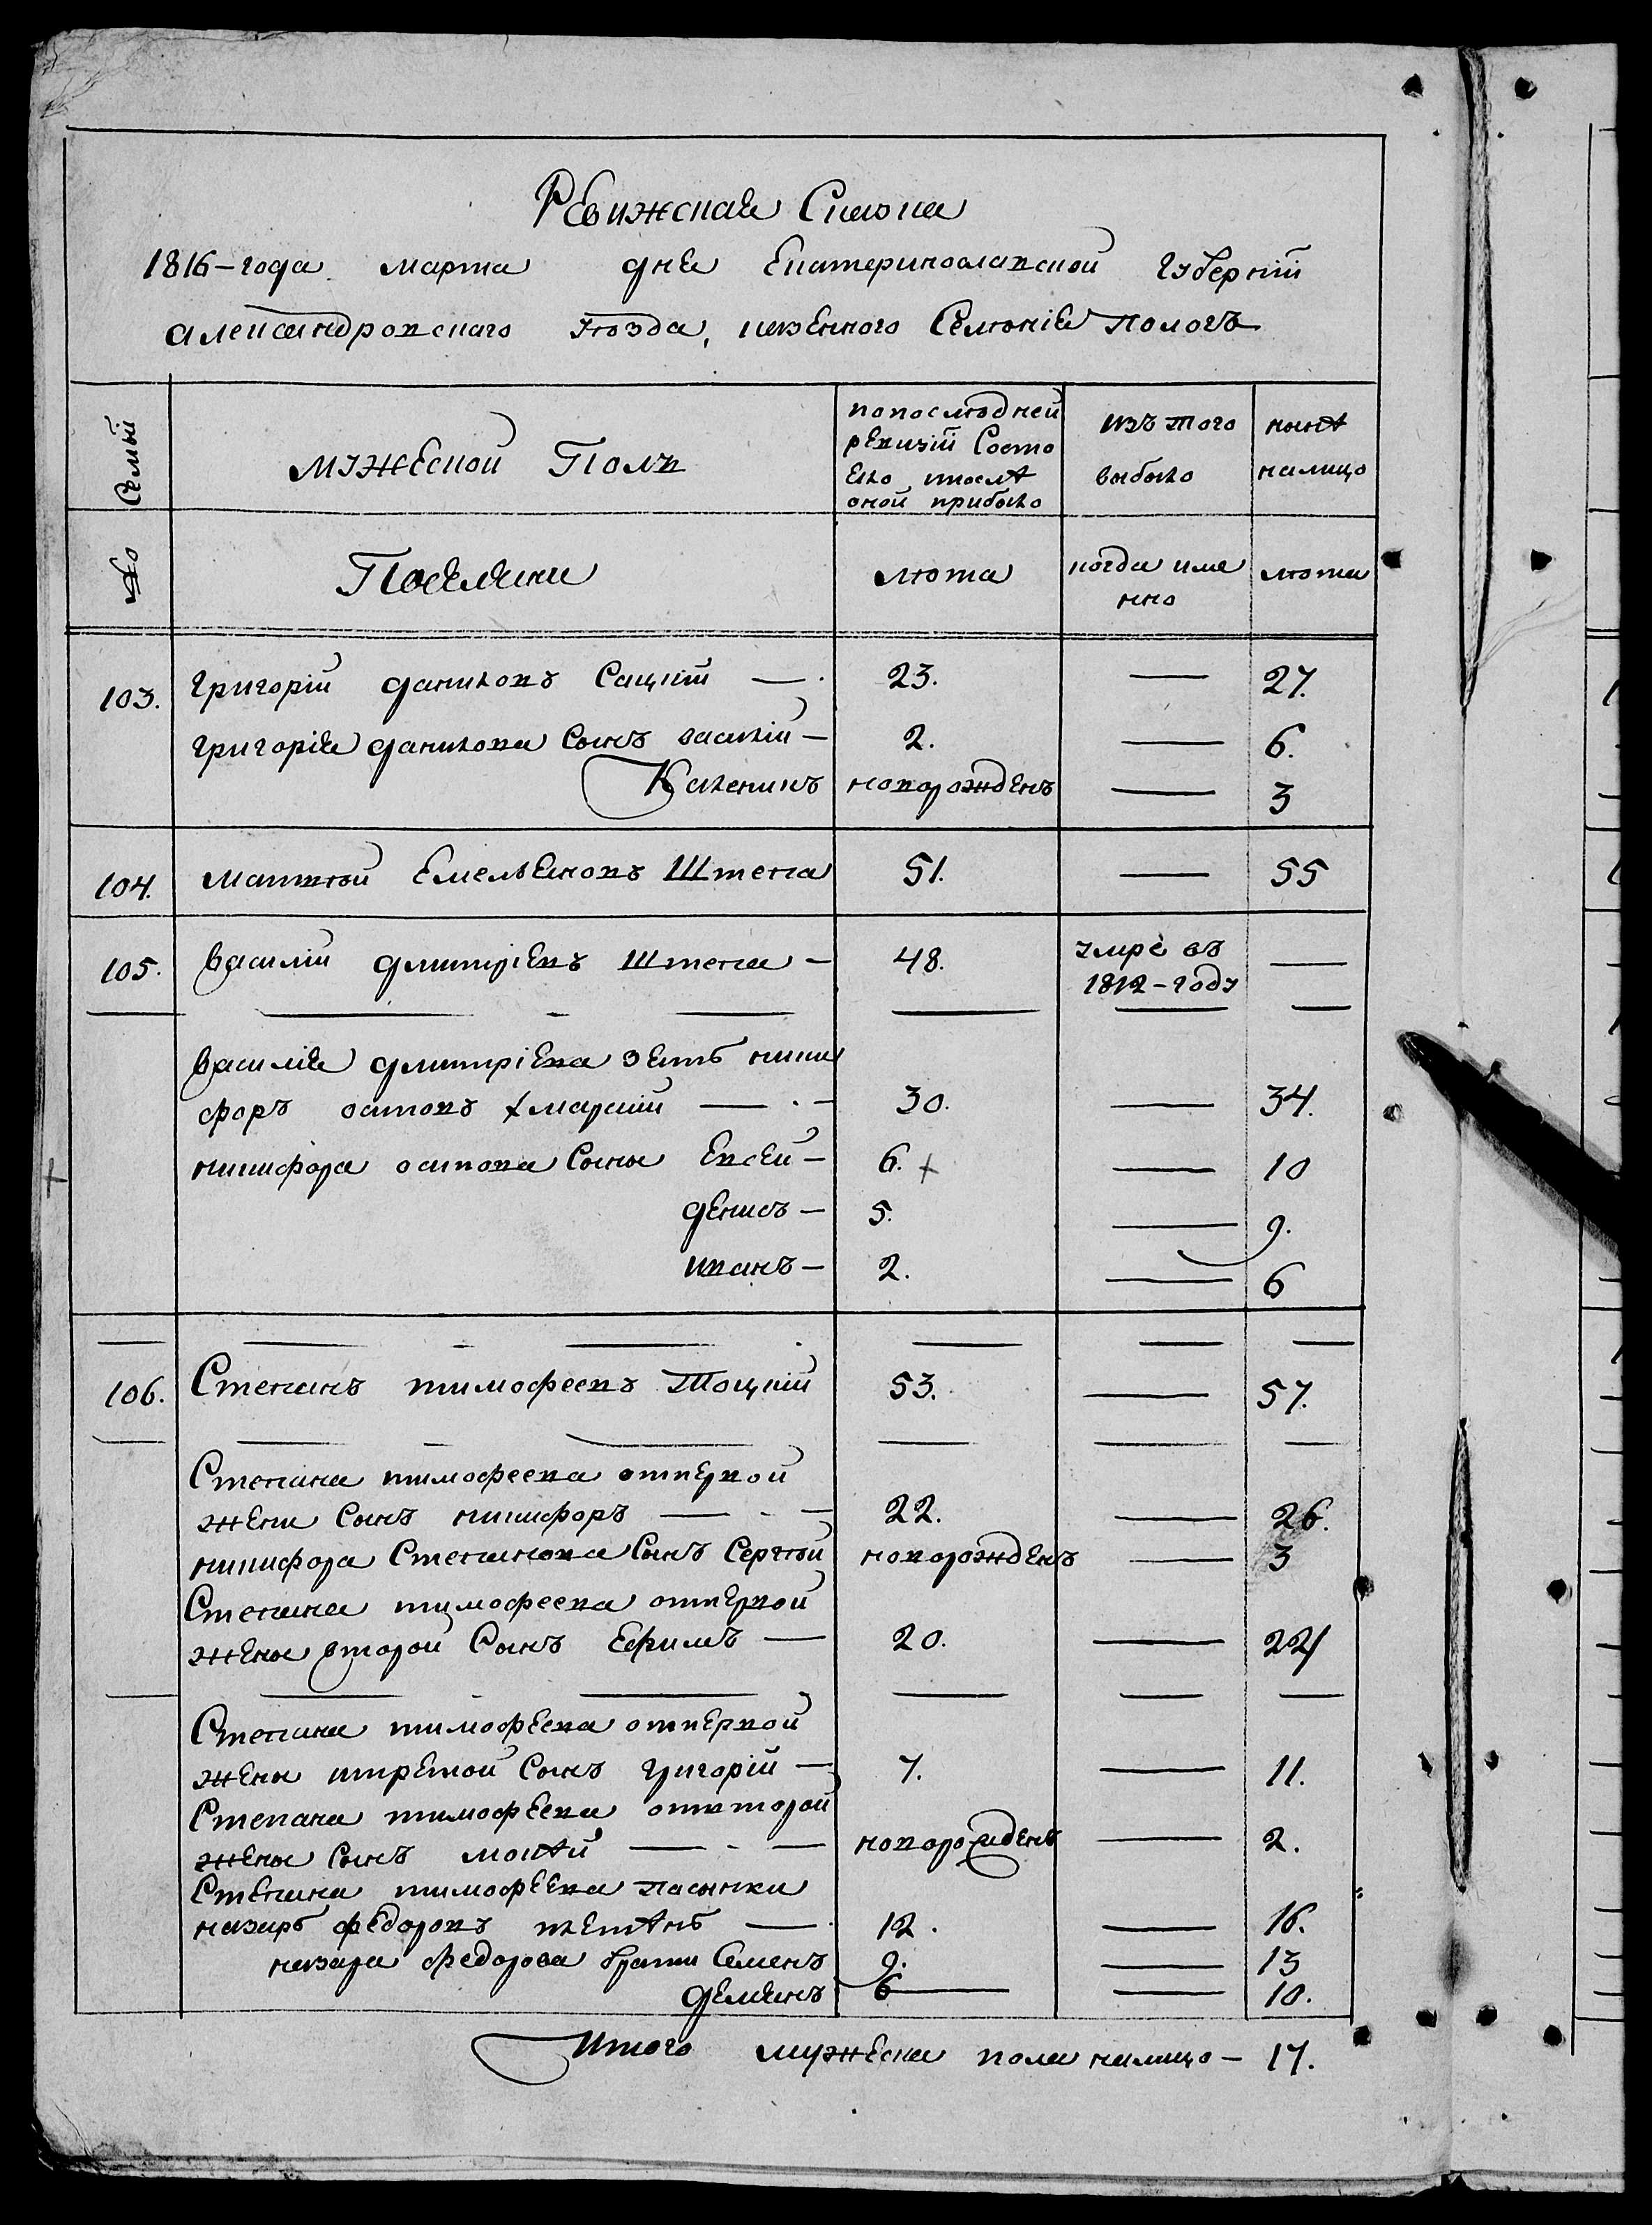 Ревижская Сказка
1816-года марта дня Екатеринославской губернїи
александровскаго уезда, казенного Селенїя пологъ
Семьи
мужеской Полъ
попоследней
ревизїи Состо
яло ипослѣ
оной прибыло
изъ того
выбыло
нынѣ
налицо
№
Поселяни
лета
когда име
нно
лета
103. григорїй даниловъ Сацкїй — 23. — 27.
григорїя данилова Сынъ василїй — 2. — 6.
Каленикъ новорожденъ — 3
104. матвей Емельяновъ Штепа 51. — 55
105. василїй дмитрїевъ Штепа — 48. умре въ —
1812-году
василїя дмитрїева зять ники
форъ остаповъ хмарскїй — 30. — 34.
никифора остапова Сыны Евсей — 6. + — 10
денисъ — 5. — 9.
иванъ — 2. — 6
106. Степанъ тимофеевъ Тоцкїй 53. — 57.
Степана тимофеева отпервой
жени Сынъ никифоръ — 22. — 26.
никифора Степанова Сынъ Сергей новорожденъ — 3
Степана тимофеева отпервой
жены второй Сынъ Ефимъ — 20. — 24
Степана тимофеева отпервой
жены третой Сынъ григорїй — 7. — 11.
Степана тимофеева отвторой
жены Сынъ мокѣй — новорожденъ — 2.
Степана тимофеева пасынки
назаръ федоровъ — 12. — 16.
назара федорова брати Семенъ 9. — 13
демянъ 6 — 10.
Итого мужеска пола налицо — 17.